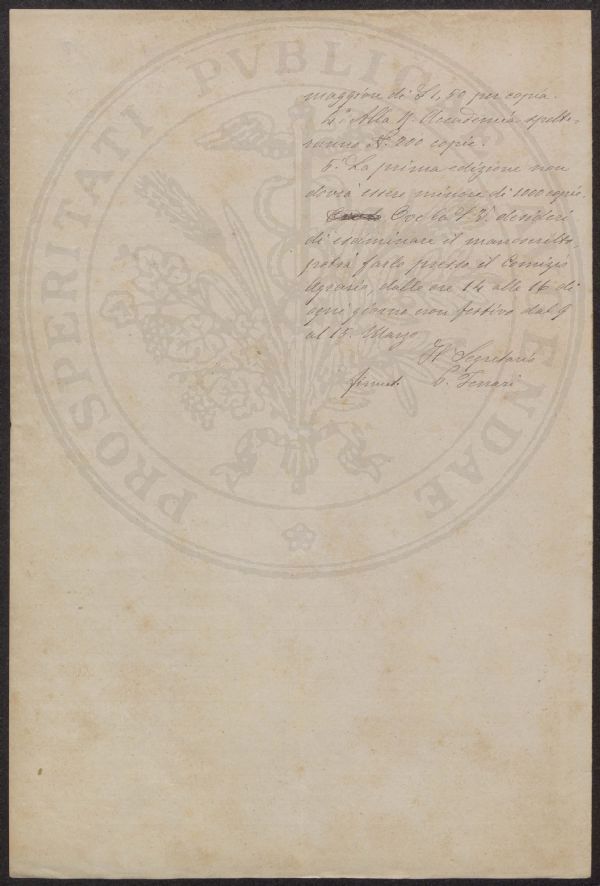 maggiore di £ 1,50 per copia.
4° Alla R. Accademia spette-
ranno N. 200 copie.
5. La prima edizione non
dovrà essere minore di 1000 copie.
Ove la S. V. desideri
di esaminare il manoscritto,
potrà farlo presso il Comizio
Agrario, dalle ore 14 alle 16 di
ogni giorno non festivo dal 9
al 15 Marzo
Il Segretario
firmat. Ferrari
PROSPERITATI PVBLICAE AVGENDAE